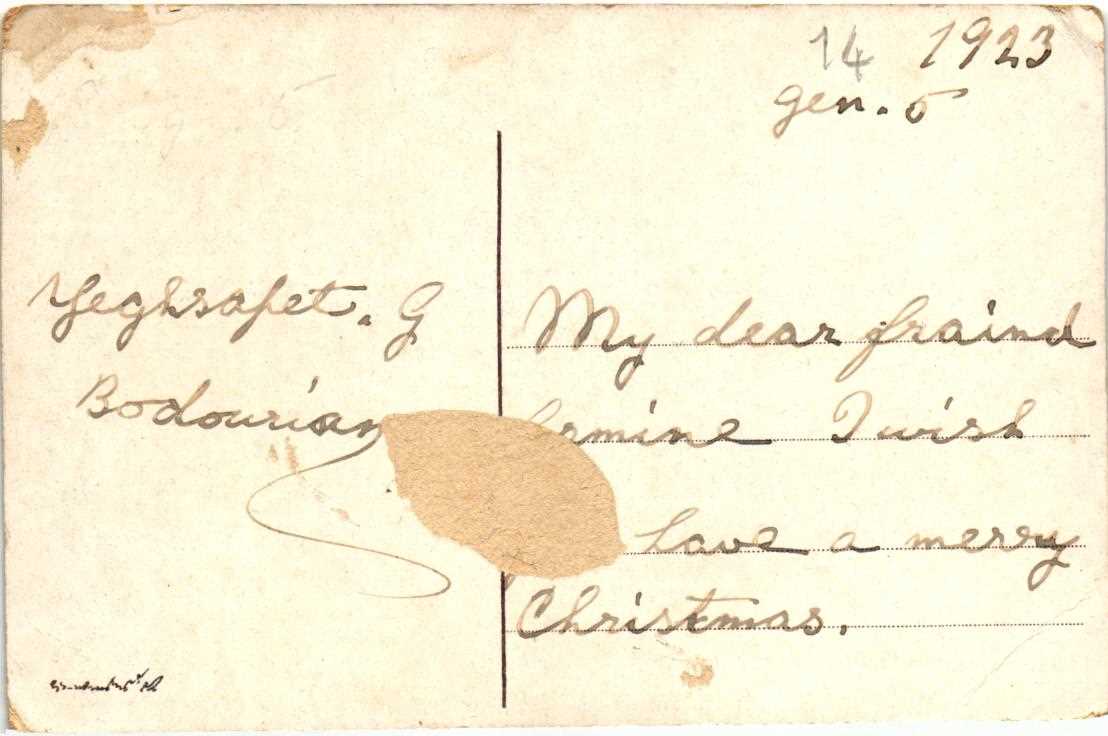 14 1923
gen. 5
Yeghsapet. G
Bodourian
My dear fraind
ermine I wish
have a merry
Christmas.